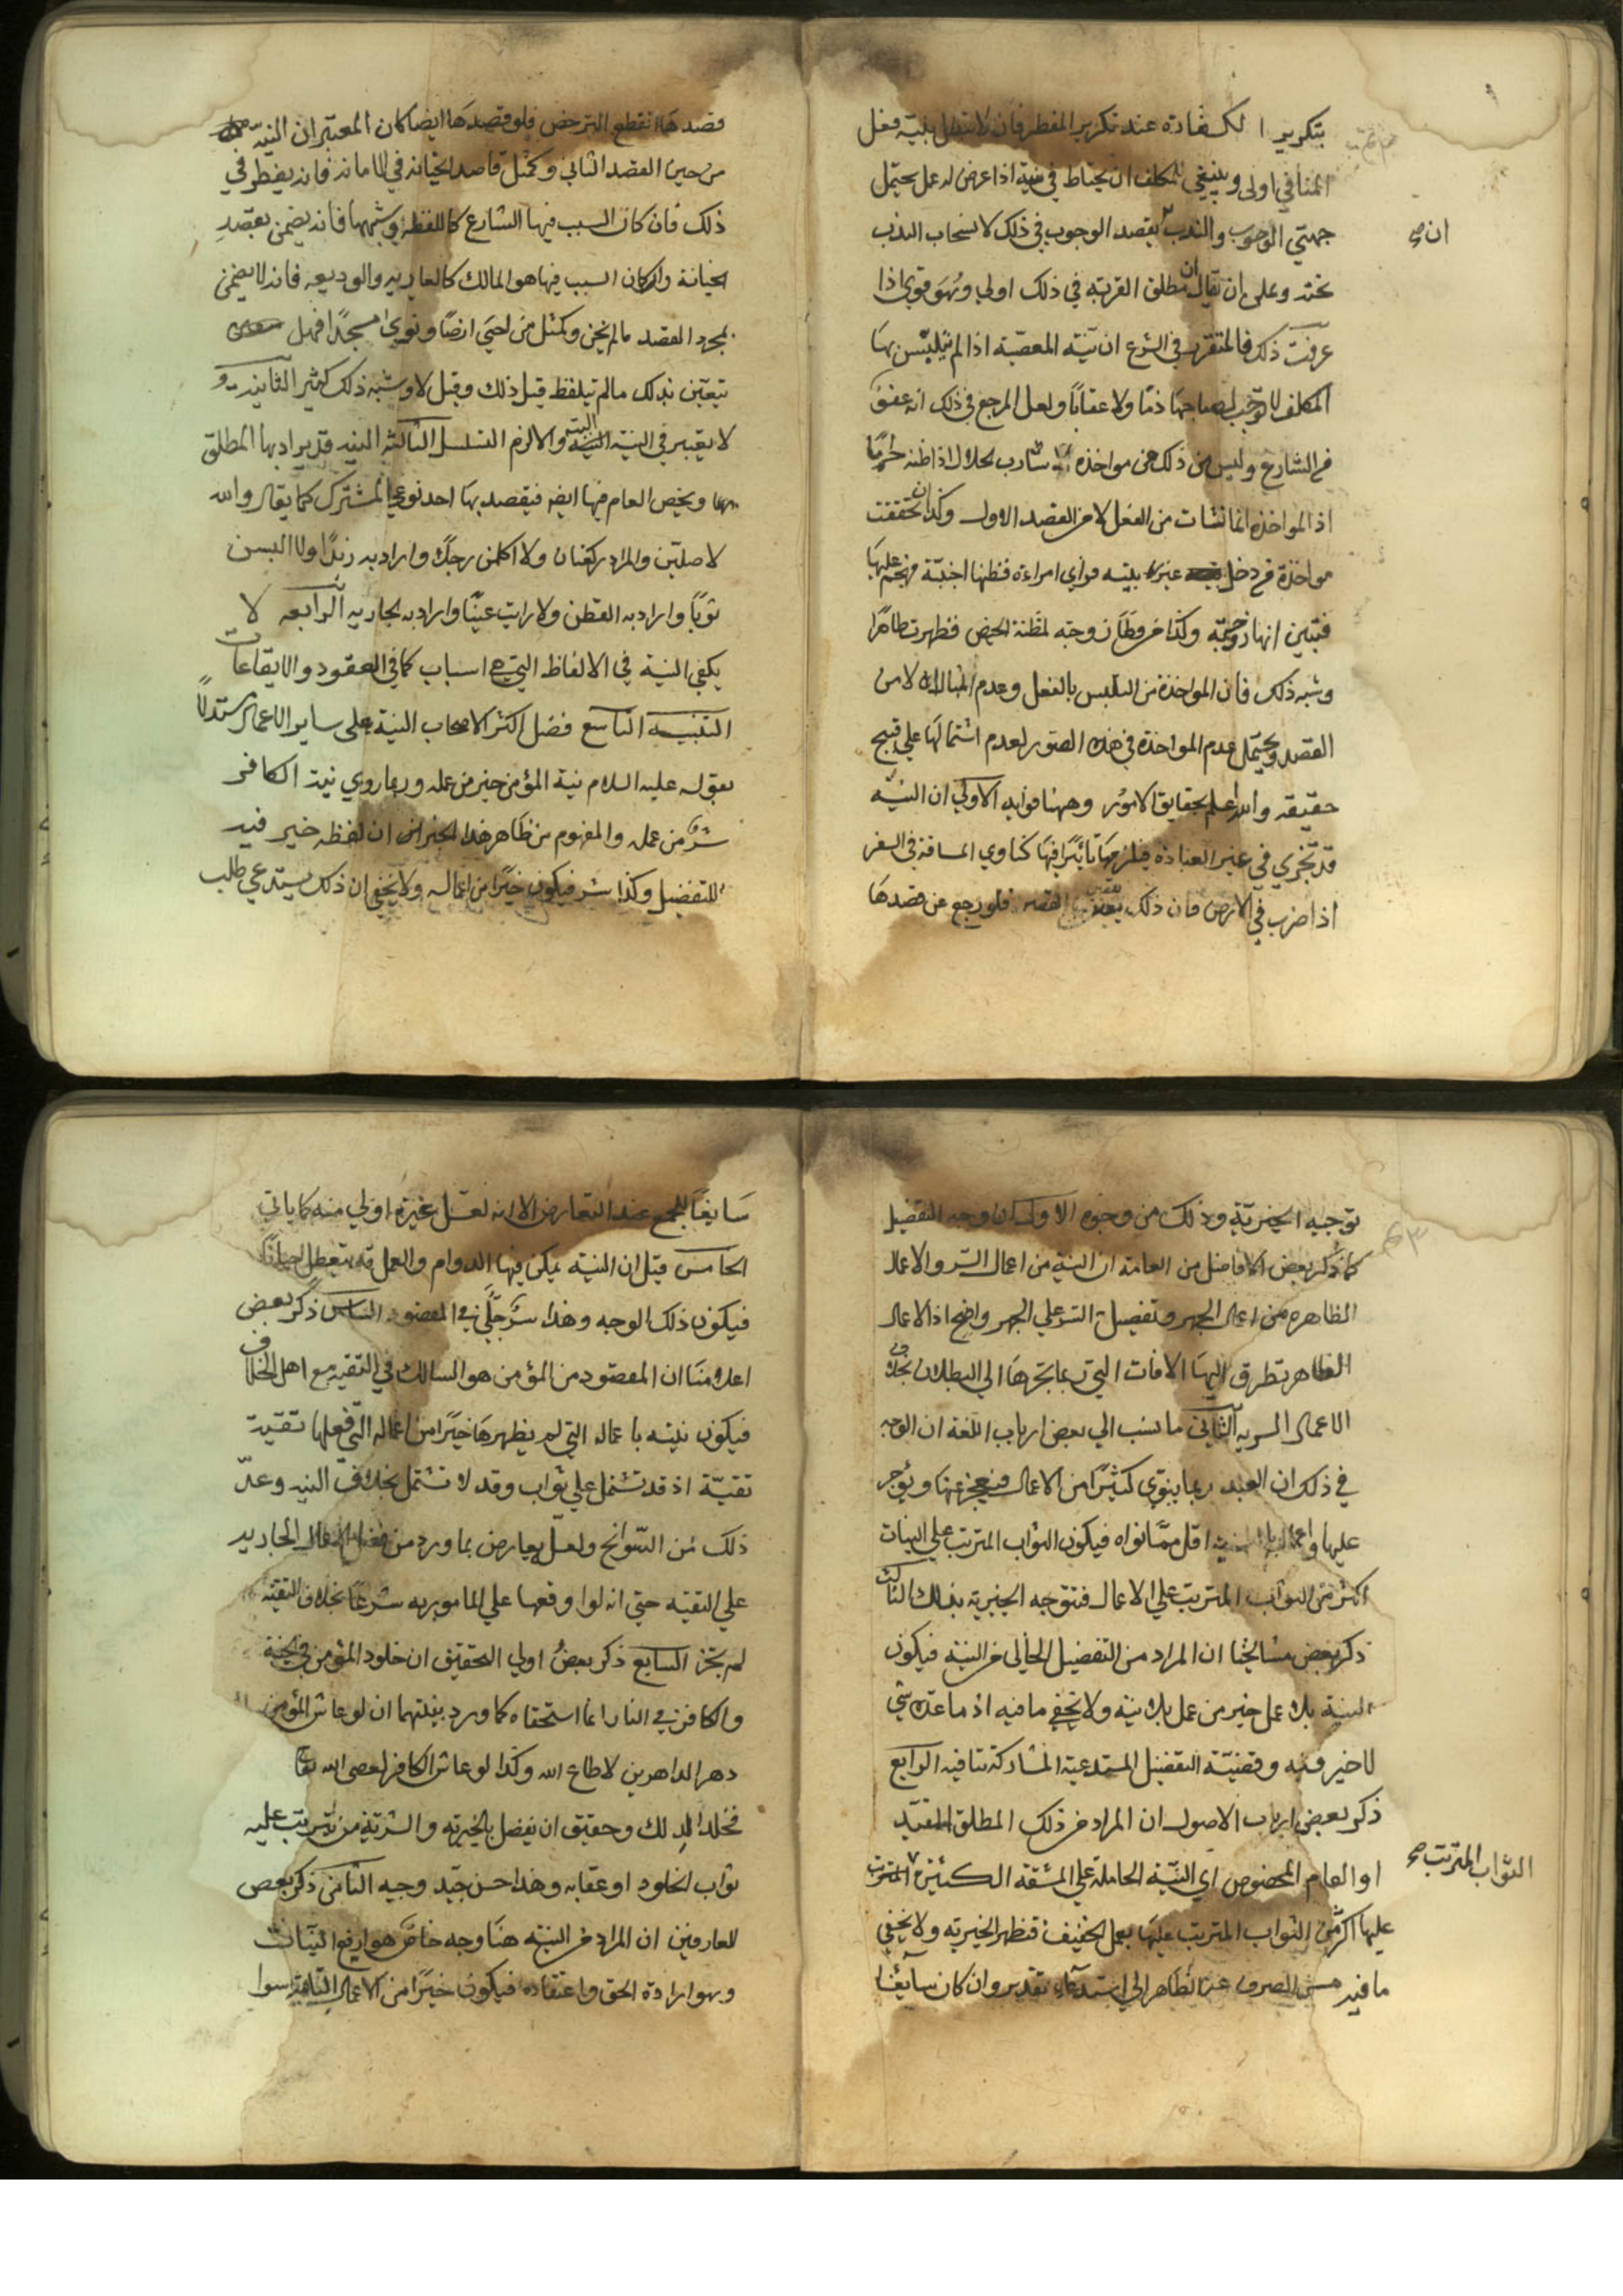 بتكرير الكفارة عند تكرير المفطر فان لا تبطل بنية فعل
المنافي اولى وينبغي للمكلف ان يحتاط في نية اذا عرض له عمل يحتمل
جهتي الوجوب والندب بقصد الوجوب في ذلك لانسحاب الندب
ان صح
تحته وعلى ان يقال ان مطلق القربة في ذلك اولى وهو قوي اذا
عرفت ذلك فالمتقرر في الشرع ان نية المعصية اذا لم يتلبس بها
المكلف لا توجب لصاحبها ذما ولا عقابا ولعل المرجع في ذلك انه عفو
من الشارع وليس من ذلك مواخذة شارب الحلال اذا ظنه خمرا
اذ المواخذة انما نشات من الفعل لا من القصد الاول وكذا ان تحققت
مواخذة من دخل غير بيته فراى امراءة فظنها اجنبية فهجم عليها
فتبين انها زوجته وكذا من وطا زوجته لمظنة الحيض فظهرت طاهرا
وشبه ذلك فان المواخذة من التلبس بالفعل وعدم المبالاة لا من
القصد ويحتمل عدم المواخذة في هذه الصور لعدم اشتمالها على قبيح
حقيقه والله اعلم بحقايق الامور وههنا فوايد الاولى ان النية
قد تجري في غير العبادة فيلزمها تاثيرا فيها كناوي المسافة في السفر
اذا ضرب في الارض فان ذلك القصر فلو رجع عن قصدها
قصدها انقطع الترخص فلو قصدها ايضا كان المعتبر ان النية
من حين القصد الثاني وكمثل قاصد الخيانة في الامانة فانه يفطر في
ذلك فان كان السبب فيها الشارع كاللقطة وشبهها فانه يضمن بقصد
الخيانة وان كان السبب فيها هو المالك كالعارية والوديعة فانه لا يضمن
بمجرد القصد ما لم يخن وكمثل من احيى ارضا ونوى مسجدا فهل
يتعين بذلك ما لم يتلفظ قيل ذلك وقيل لا وشبه ذلك كثير الثانية
لا يعتبر في النية النية والا لزم التسلسل الثالثة النية قد يراد بها المطلق
بها ويخص العام فيها ايضا فيقصد بها احد نوعي المشترك كما يقال والله
لا صلين والمراد ركعتان ولا اكلمن رجلا واراد به زيدا ولا البسن
ثوبا واراد به القطن ولا رايت عينا واراد به الجارية الرابعة لا
يكفي النية في الالفاظ التي هي اسباب كما في العقود والايقاعات
التنبيه التاسع فضل اكثر الاصحاب النية على ساير الاعمال استدلالا
بقوله عليه السلام نية المؤمن خير من عمله وربما روي نية الكافر
شر من عمله والمفهوم من ظاهر هذا الخبر ان لفظة خير فيه
للتفضيل وكذا شر فيكون خيرا من اعماله ولا يخفى ان ذلك يستدعي طلب
توجيه الخيرية وذلك من وجوه الاول ان وجه التفضيل
كما ذكر بعض الافاضل من العامة ان النية من اعمال السر والاعمال
الظاهرة من اعمال الجهر وتفضيل السر على الجهر واضح اذ الاعمال
الظاهر تطرق اليها الافات التي ربما تجرها الى البطلان بخلاف
الاعمال السرية الثاني ما نسب الى بعض ارباب اللغة ان الوجه
في ذلك ان العبد ربما ينوي كثيرا من الاعمال فيعجز عنها ويؤجر
عليها واعماله اقل مما نواه فيكون الثواب المترتب على النيات
اكثر من الثواب المترتب على الاعمال فتتوجه الخيرية بذلك الثالث
ذكر بعض مشايخنا ان المراد من التفضيل الخالي من النية فيكون
النية بلا عمل خير من عمل بلا نية ولا يخفى ما فيه اذ ما عداه شي
لا خير فيه وقضية التفضيل المستدعية المشاركة تنافيه الرابع
ذكر بعض ارباب الاصول ان المراد من ذلك المطلق المقيد
او العام المخصوص اي النية الحاملة على المشقة الكثيرة المترتب
الثواب المترتب صح
عليها اكثر من الثواب المترتب عليها بعمل الخفيف فتظهر الخيرية ولا يخفى
ما فيه من الصرف عن الظاهر الى استدعاء تقدير وان كان سايغا
سايغا للجمع عند التعارض الا انه لعل غيره اولى منه كما ياتي
الخامس قيل ان النية يمكن فيها الدوام والعمل قد يتعطل احيانا
فيكون ذلك الوجه وهذا سر جلي في المقصود السادس ذكر بعض
اعلامنا ان المقصود من المؤمن هو السالك في التقية مع اهل الخلاف
فيكون نيته باعماله التي لم يظهرها خيرا من اعماله التي فعلها تقية
تقية اذ قد تشتمل على ثواب وقد لا تشتمل بخلاف النية وعد
ذلك من السوانح ولعل يعارض بما ورد من فضل الاعمال الجارية
على التقية حتى انه لو اوقعها على المامور به شرعا بخلاف التقية
لم يجز السابع ذكر بعض اولي التحقيق ان خلود المؤمن في الجنة
والكافر في النار انما استحقاه كما ورد بنيتهما ان لو عاش المؤمن
دهر الداهرين لاطاع الله وكذا لو عاش الكافر لعصى الله تعا
فخلدا لذلك وحقيق ان يفضل بالخيرية والشرية من يترتب عليه
ثواب الخلود او عقابه وهذا حسن جيد وجيه الثامن ذكر بعض
العارفين ان المراد من النية هنا وجه خاص هو ارفع النيات
وهو ارادة الحق واعتقاده فيكون خيرا من الاعمال